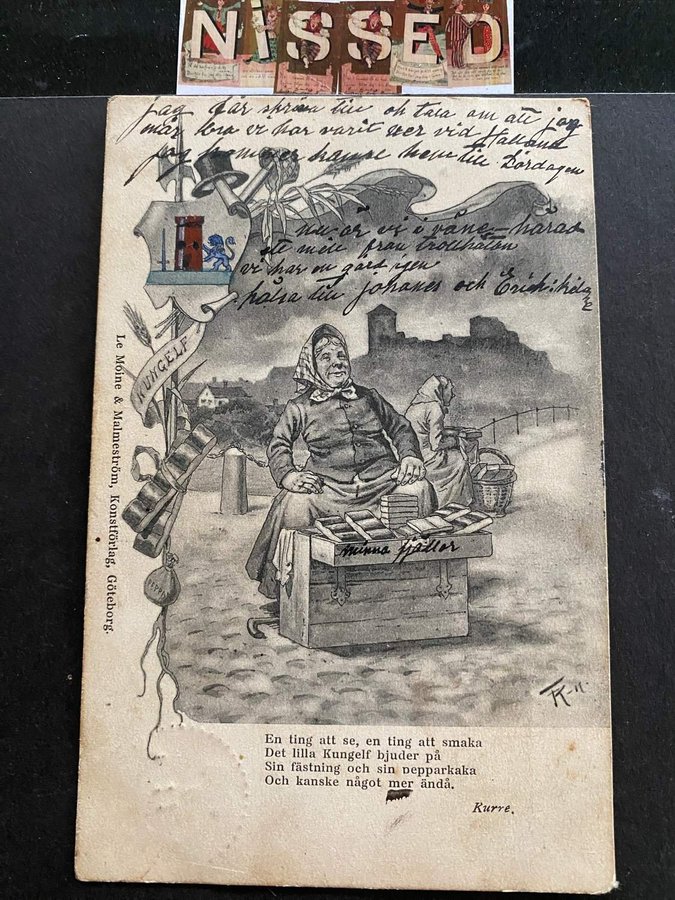 NISSED
Jag får skriva till oh tala om att jag
mår bra vi har varit över vid Halland
Jag kommer hem till Lördagen
nu är vi i vänes-härad
ett mill från trollhätan
vi har en gård igen
hälsa till Johanes och Erich
KUNGELF
Le Moine & Malmeström, Konstförlag, Göteborg.
minna fjällor
En ting att se, en ting att smaka
Det lilla Kungelf bjuder på
Sin fästning och sin pepparkaka
Och kanske något mer ändå.
Kurre.